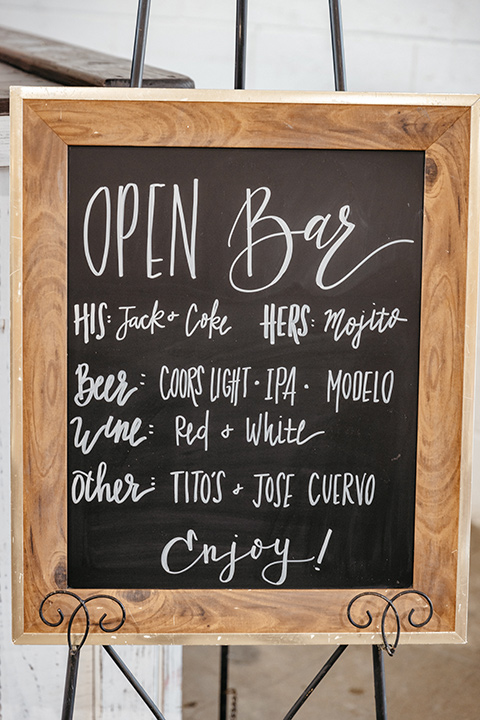 OPEN Bar
HIS: Jack + Coke HERS: Mojito
Beer: COORS LIGHT · IPA · MODELO
Wine: Red + White
Other: TITO'S + JOSE CUERVO
Enjoy!